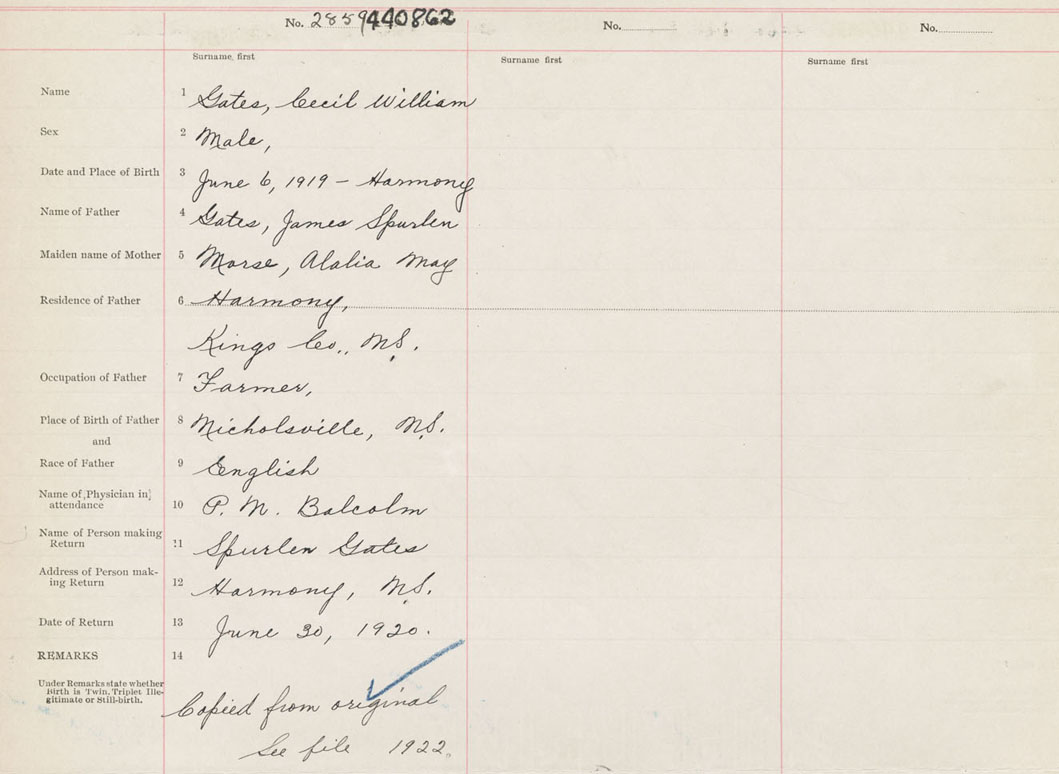 No. 2859 440862 No. No.
Surname, first Surname first Surname first
Name 1 Gates, Cecil William
Sex 2 Male,
Date and Place of Birth 3 June 6, 1919 - Harmony
Name of Father 4 Gates, James Spurlen
Maiden name of Mother 5 Morse, Alalia May
Residence of Father 6 Harmony,
Kings Co., N.S.
Occupation of Father 7 Farmer,
Place of Birth of Father 8 Nicholsville, N.S.
and
Race of Father 9 English
Name of Physician in
attendance 10 P. M. Balcolm
Name of Person making
Return 11 Spurlen Gates
Address of Person mak-
ing Return 12 Harmony, N.S.
Date of Return 13 June 30, 1920.
REMARKS 14
Under Remarks state whether
Birth is Twin, Triplet Ille-
gitimate or Still-birth.
Copied from original
See file 1922.